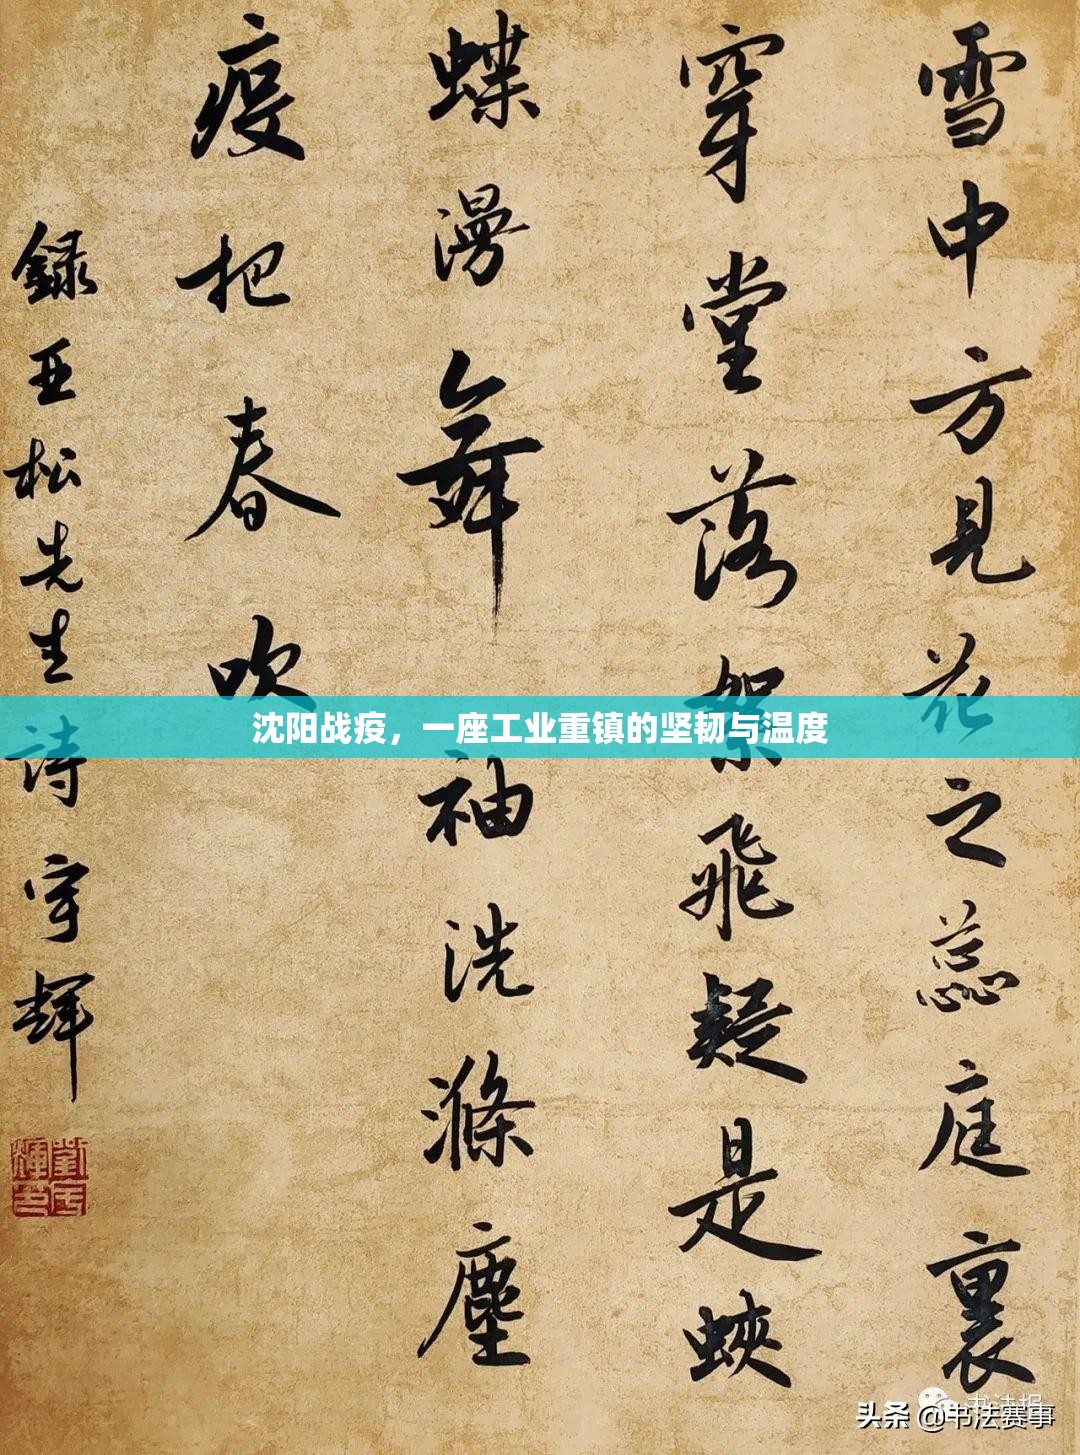 雪中方見花之蕊庭裏
穿堂落絮飛疑是蛺
蝶漫舞袖洗滌塵
疫把春吹
錄亚松先生詩宇輝
沈阳战疫，一座工业重镇的坚韧与温度
书法报
头条 @书法赛事